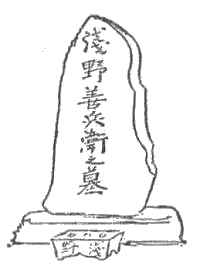 淺野善兵衛之墓
淺野